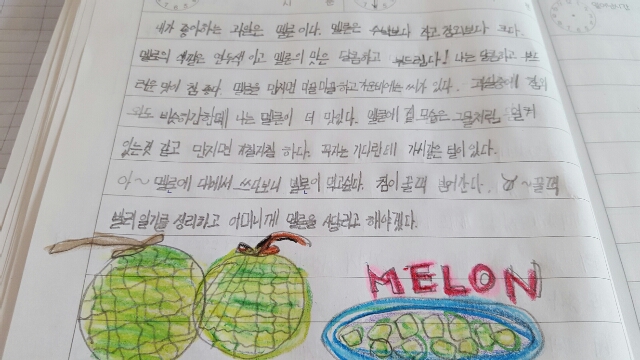 내가 좋아하는 과일은 멜론 이다. 멜론은 수박보다 작고 참외보다 크다.
멜론의 색깔은 연두색 이고 멜론의 맛은 달콤하고 부드럽다! 나는 달콤하고 부드
러운 맛이 참 좋다. 멜론을 만지면 미끌미끌하고 가운데에는 씨가 있다. 과일중에 참외
와도 비슷하지만 나는 멜론이 더 맛있다. 멜론에 겉 모습은 그물처럼
있는것 같고 만지면 까칠까칠 하다. 꼭지는 기다란데 가시같은 털이 있다.
아~ 멜론에 대해서 쓰다보니 멜론이 먹고싶다. 침이 꼴깍 넘어간다. ~꼴깍
빨리 일기를 정리하고 어머니께 멜론을 사달라고 해야겠다.
MELON